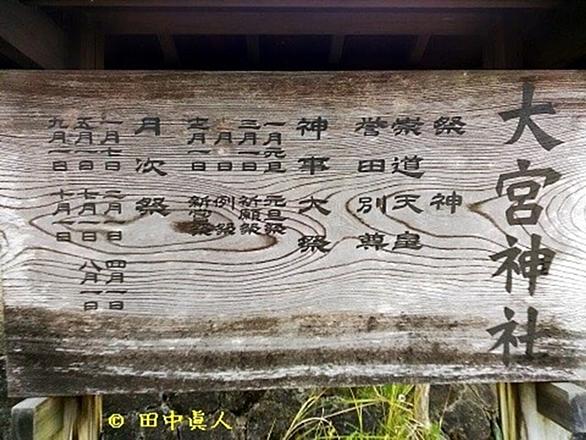 大宮神社
祭神
崇道天皇
誉田別尊
神事大祭
一月元旦 元旦祭
三月一日 祈願祭
十月一日 例祭
十二月一日 新嘗祭
月次祭
一月七日 二月一日 四月一日
五月一日 七月一日 八月一日
九月一日 十月一日
© 田中眞人